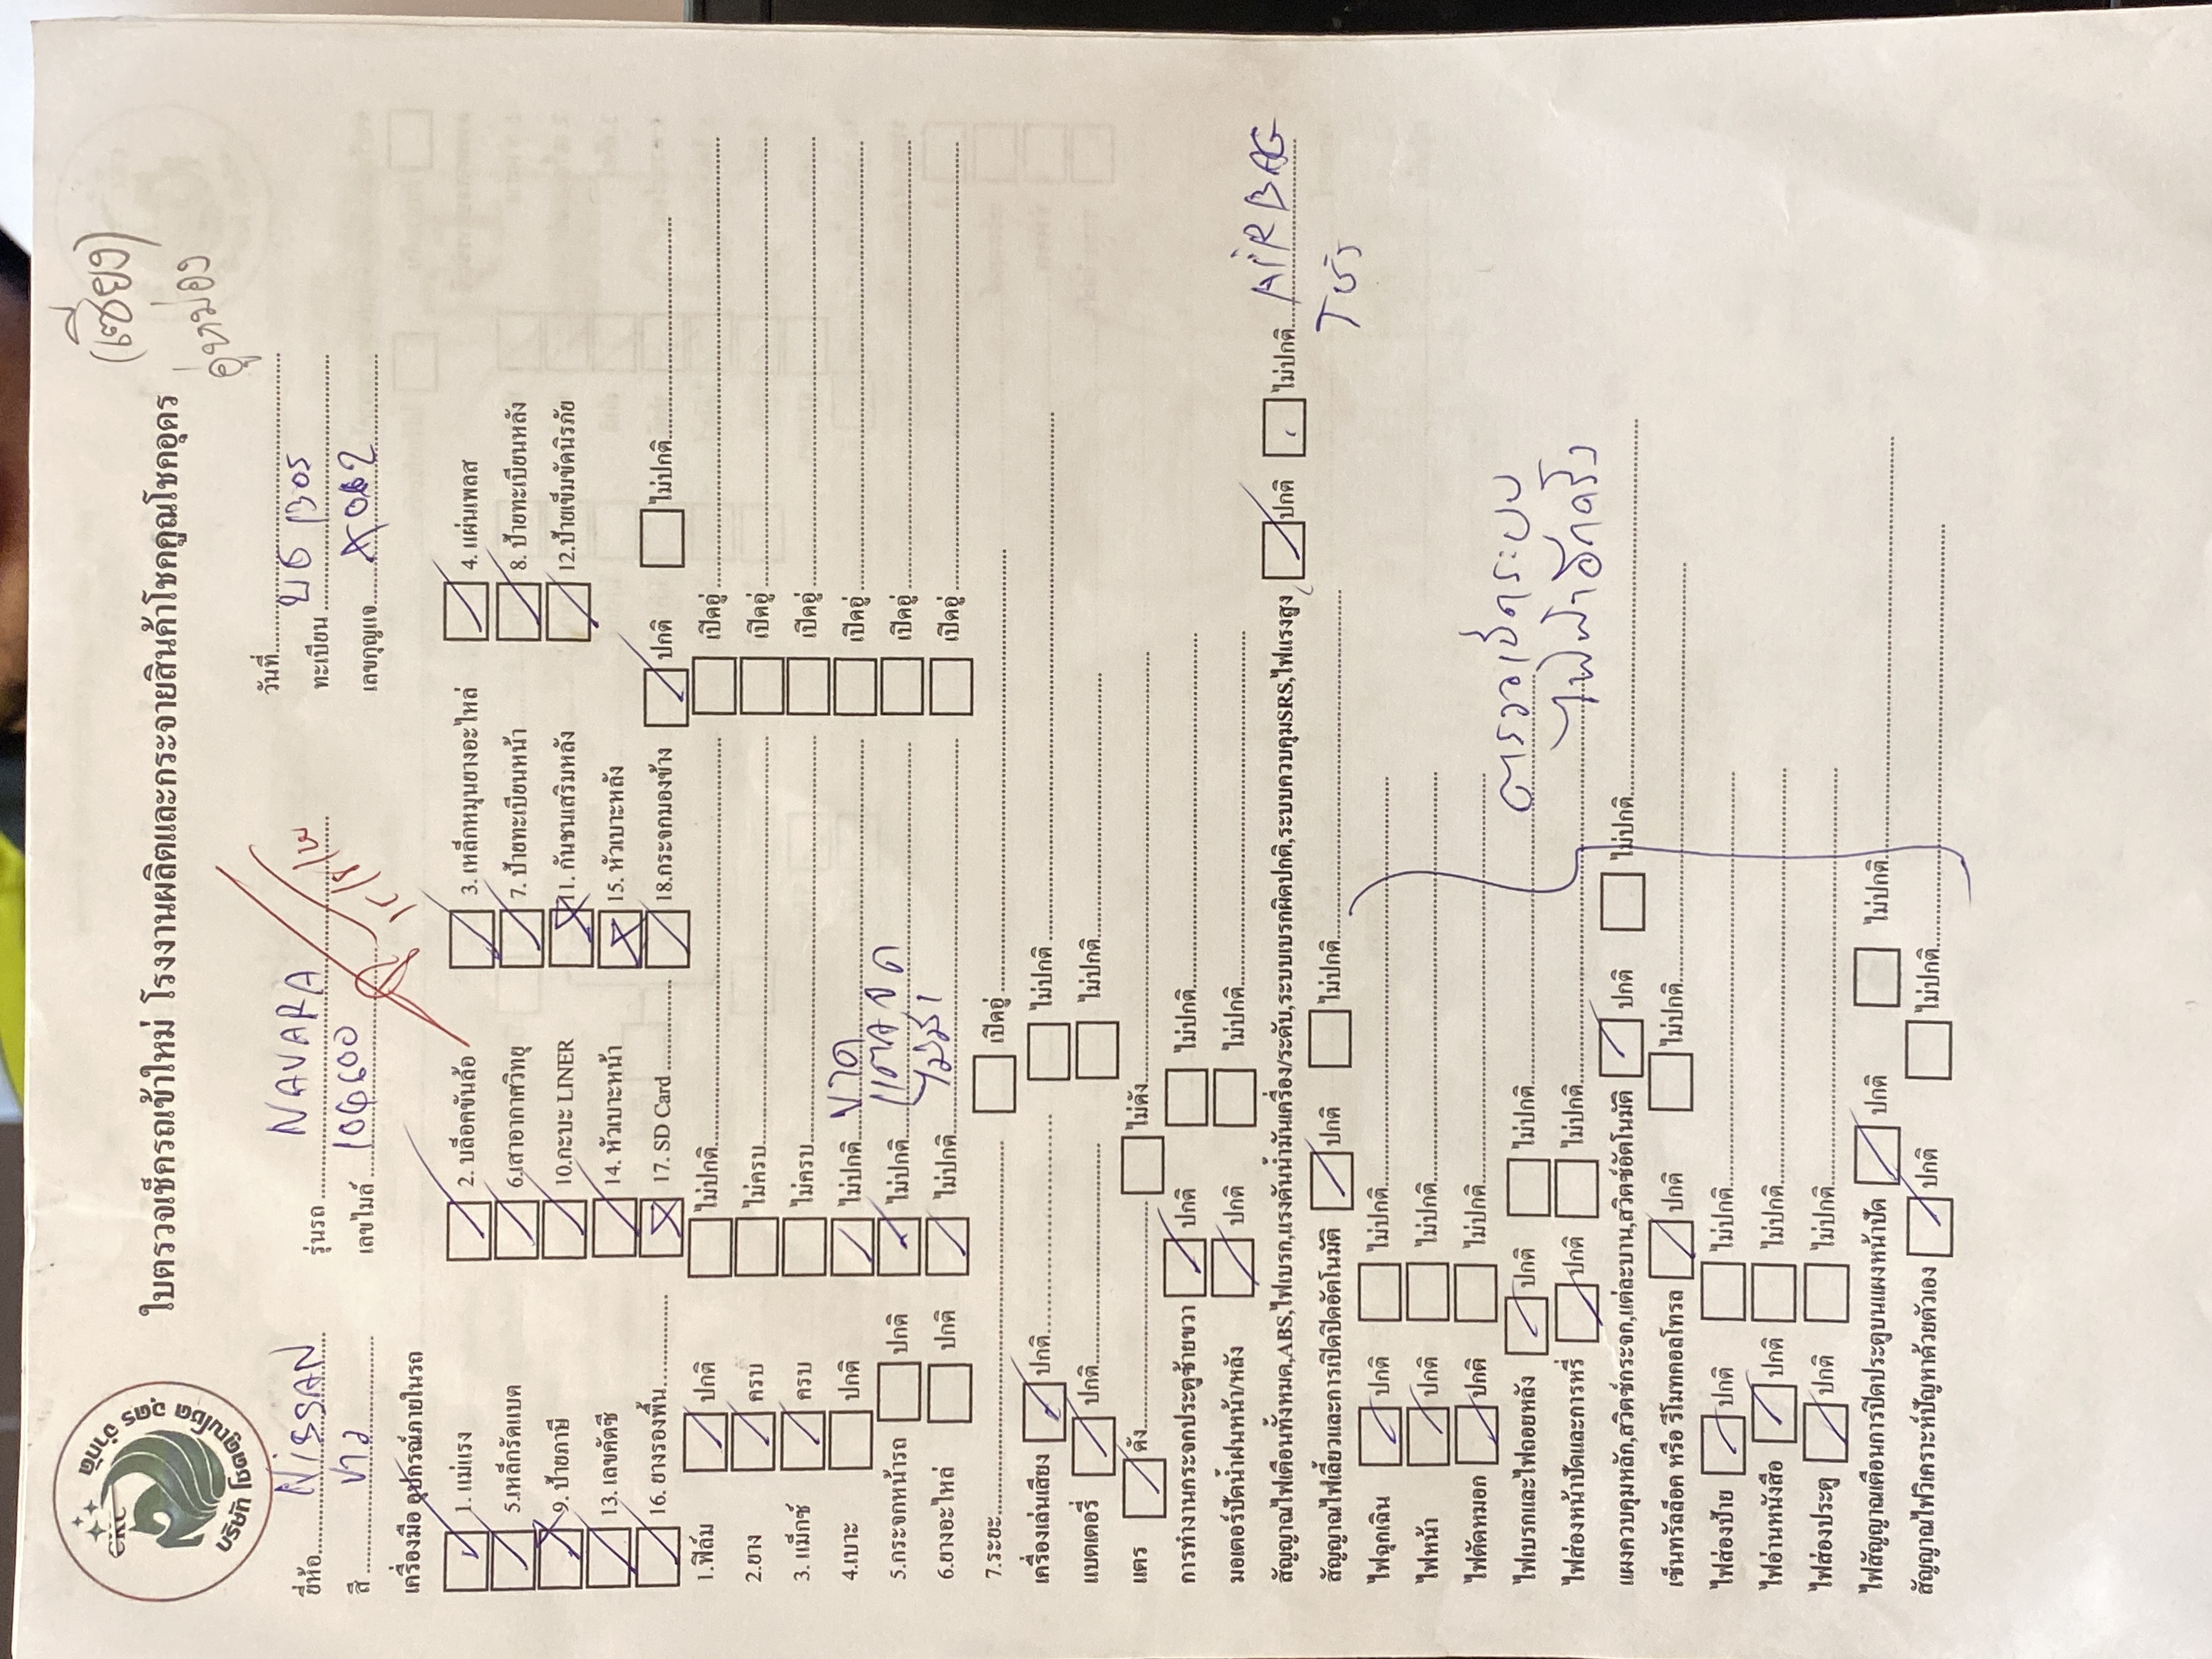 (เซียง)
อู่ทม่อง
CKC
บริษัท โชคคูณโชค อุดร จำกัด
ใบตรวจเช็ครถเข้าใหม่ โรงงานผลิตและกระจายสินค้าโชคคูณโชคอุดร
ยี่ห้อ NiSSAN รุ่นรถ NAVARA วันที่
สี ขาว เลขไมล์ ทะเบียน
เลขกุญแจ
เครื่องมือ อุปกรณ์ภายในรถ
1. แม่แรง 2. บล็อคขันล้อ 3. เหล็กหมุนยางอะไหล่ 4. แผ่นเพลส
5.เหล็กรัดแบต 6.เสาอากาศวิทยุ 7. ป้ายทะเบียนหน้า 8. ป้ายทะเบียนหลัง
9. ป้ายภาษี 10.กะบะ LINER 11. กันชนเสริมหลัง 12.ป้ายเข็มขัดนิรภัย
13. เลขคัตซี 14. หัวเบาะหน้า 15. หัวเบาะหลัง
16. ยางรองพื้น 17. SD Card 18.กระจกมองข้าง ปกติ ไม่ปกติ
1.ฟิล์ม ปกติ ไม่ปกติ เปิดอู่
2.ยาง ครบ ไม่ครบ เปิดอู่
3. แม็กซ์ ครบ ไม่ครบ เปิดอู่
4.เบาะ ปกติ ไม่ปกติ ขาด เปิดอู่
5.กระจกหน้ารถ ปกติ ไม่ปกติ แตก เปิดอู่
6.ยางอะไหล่ ปกติ ไม่ปกติ ไม่มี เปิดอู่
7.ระยะ เปิดอู่
เครื่องเล่นเสียง ปกติ ไม่ปกติ
แบตเตอรี่ ปกติ ไม่ปกติ
แตร ดัง ไม่ดัง
การทำงานกระจกประตูซ้ายขวา ปกติ ไม่ปกติ
มอเตอร์ปัดน้ำฝนหน้า/หลัง ปกติ ไม่ปกติ
สัญญาณไฟเตือนทั้งหมด,ABS,ไฟเบรก,แรงดันน้ำมันเครื่อง/ระดับ,ระบบเบรกผิดปกติ,ระบบควบคุมSRS,ไฟแรงสูง ปกติ ไม่ปกติ AiRBAG
โชว์
สัญญาณไฟเลี้ยวและการเปิดปิดอัตโนมัติ ปกติ ไม่ปกติ
ไฟฉุกเฉิน ปกติ ไม่ปกติ
ไฟหน้า ปกติ ไม่ปกติ
ไฟตัดหมอก ปกติ ไม่ปกติ
ไฟเบรกและไฟถอยหลัง ปกติ ไม่ปกติ ตรวจเช็คระบบ
ไฟส่องหน้าปัดและการหรี่ ปกติ ไม่ปกติ ไฟฟ้าอีกครั้ง
แผงควบคุมหลัก,สวิตช์กระจก,แต่ละบาน,สวิตช์อัตโนมัติ ปกติ ไม่ปกติ
เซ็นทรัลล็อค หรือ รีโมทคอลโทรล ปกติ ไม่ปกติ
ไฟส่องป้าย ปกติ ไม่ปกติ
ไฟอ่านหนังสือ ปกติ ไม่ปกติ
ไฟส่องประตู ปกติ ไม่ปกติ
ไฟสัญญาณเตือนการปิดประตูบนแผงหน้าปัด ปกติ ไม่ปกติ
สัญญาณไฟวิเคราะห์ปัญหาด้วยตัวเอง ปกติ ไม่ปกติ